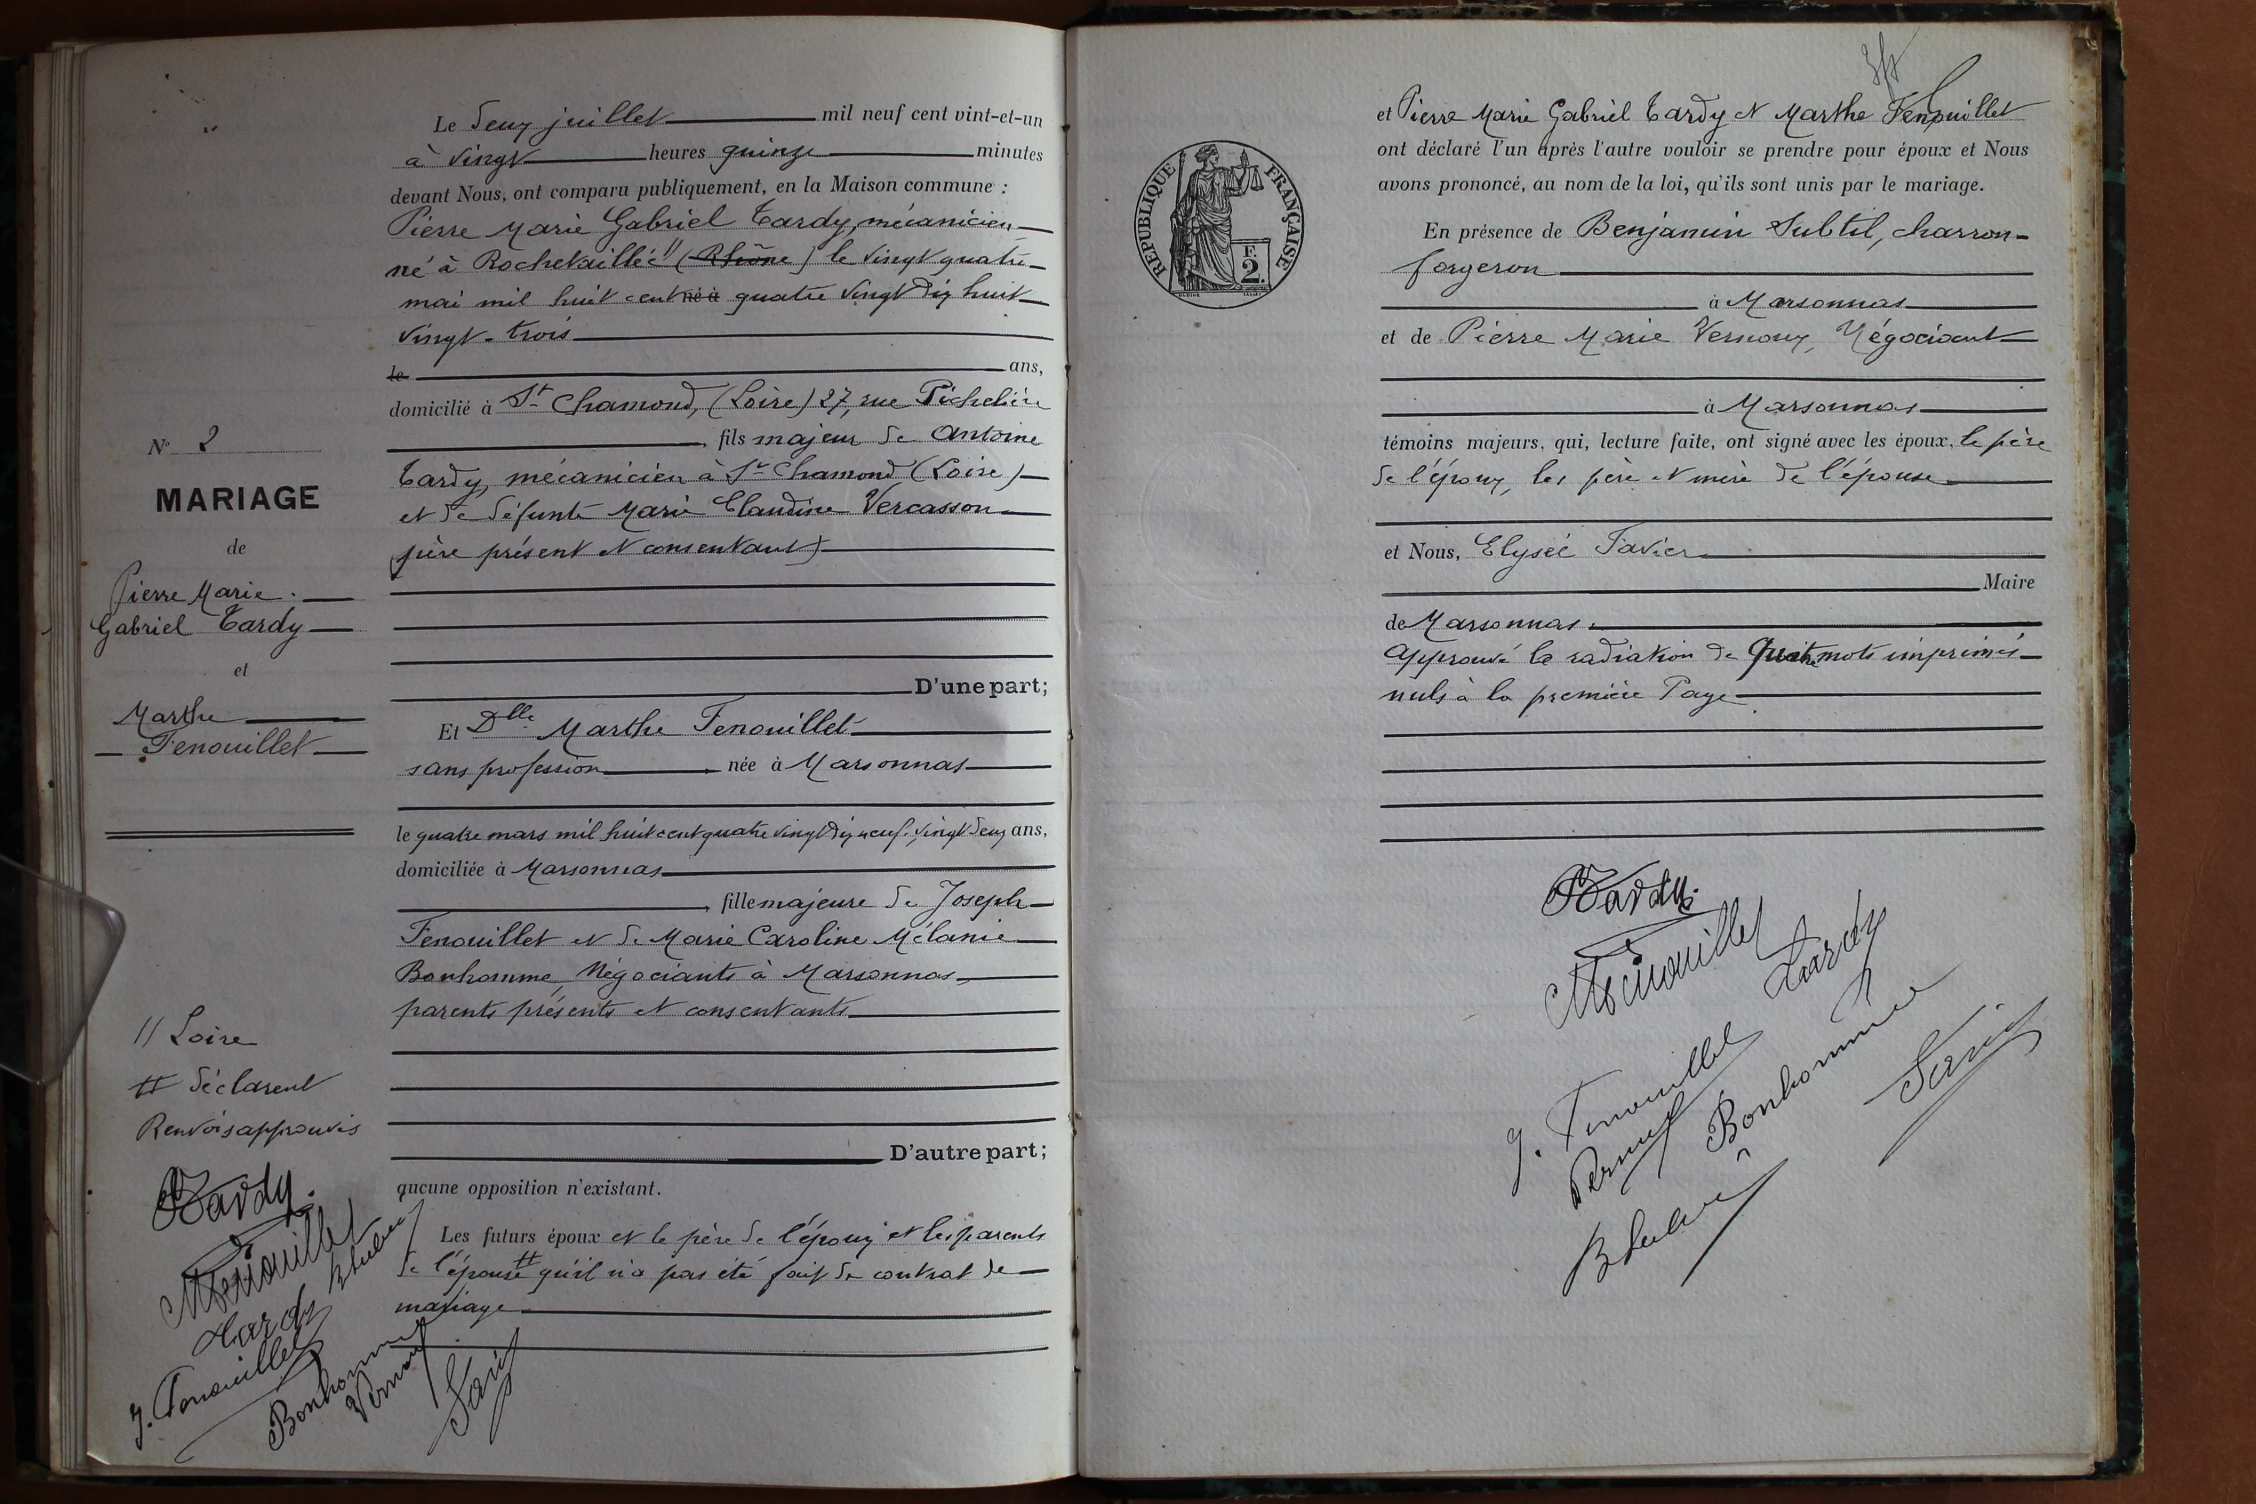 N° 2
MARIAGE
de
Pierre Marie
Gabriel Tardy
et
Marthe
Fenouillet
// Loire
# déclarent
Renvois approuvés
Tardy
MFenouillet
Tardy
J. Fenouillet
Bonhomme
Vernoux
Le deux juillet mil neuf cent vint-et-un
à vingt heures quinze minutes
devant Nous, ont comparu publiquement, en la Maison commune :
Pierre Marie Gabriel Tardy, mécanicien
né à Rochetaillée // (Rhône) le vingt quatre
mai mil huit cent né à quatre vingt dix huit
vingt-trois
le ans,
domicilié à St Chamond, (Loire) 27, rue Richelière
, fils majeur de Antoine
Tardy, mécanicien à St Chamond (Loire)
et de défunte Marie Claudine Vercasson
(père présent et consentant)
D'une part;
Et Dlle Marthe Fenouillet
sans profession née à Marsonnas
le quatre mars mil huit cent quatre vingt dix neuf, vingt deux ans,
domiciliée à Marsonnas
, fille majeure de Joseph
Fenouillet et de Marie Caroline Mélanie
Bonhomme, Négociants à Marsonnas,
parents présents et consentants
D'autre part;
aucune opposition n'existant.
Les futurs époux et le père de l'époux et les parents
de l'épouse # qu'il n'a pas été fait de contrat de
mariage
RÉPUBLIQUE FRANÇAISE
F.
2.
et Pierre Marie Gabriel Tardy et Marthe Fenouillet
ont déclaré l'un après l'autre vouloir se prendre pour époux et Nous
avons prononcé, au nom de la loi, qu'ils sont unis par le mariage.
En présence de Benjamin Subtil, charron-
forgeron
à Marsonnas
et de Pierre Marie Vernoux, Négociant
à Marsonnas
témoins majeurs, qui, lecture faite, ont signé avec les époux, le père
de l'époux, les père et mère de l'épouse
et Nous, Elysée Favier
Maire
de Marsonnas.
Approuvé la radiation de quatre mots imprimés
nuls à la première Page
Tardy
MFenouillet
Tardy
J. Fenouillet
Bonhomme
Vernoux